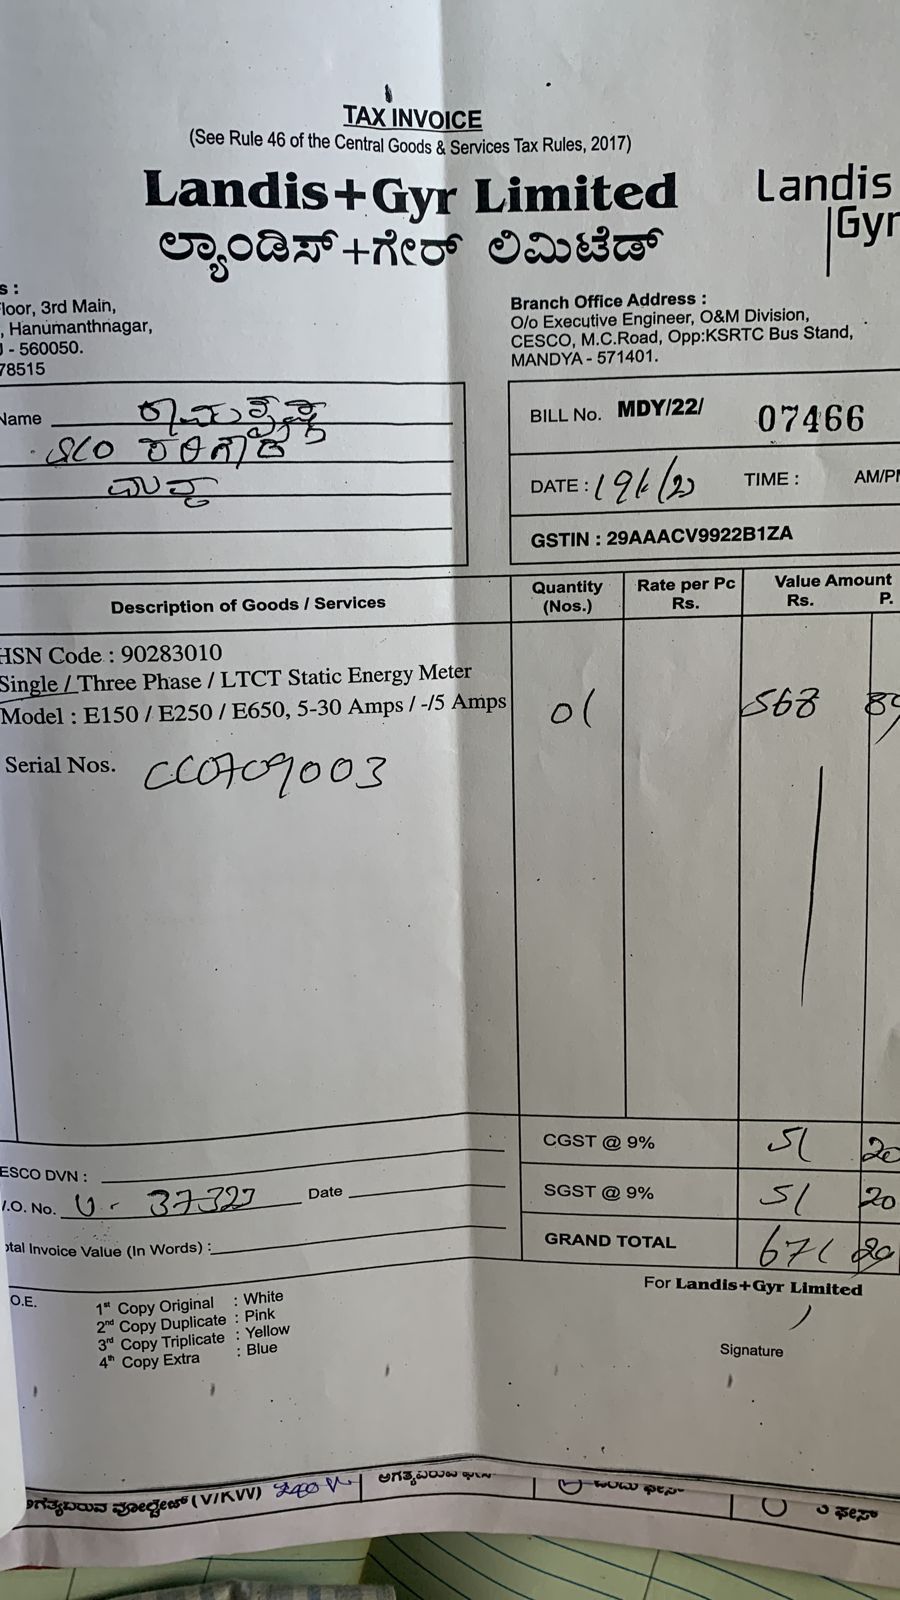 TAX INVOICE
(See Rule 46 of the Central Goods & Services Tax Rules, 2017)
Landis+Gyr Limited
ಲ್ಯಾಂಡಿಸ್+ಗೇರ್ ಲಿಮಿಟೆಡ್
Landis
Gyr
s :
Floor, 3rd Main,
, Hanumanthnagar,
- 560050.
78515
Branch Office Address :
O/o Executive Engineer, O&M Division,
CESCO, M.C.Road, Opp:KSRTC Bus Stand,
MANDYA - 571401.
Name
S/O
BILL No. MDY/22/ 07466
DATE : TIME : AM/PM
GSTIN : 29AAACV9922B1ZA
Description of Goods / Services
Quantity (Nos.)
Rate per Pc Rs.
Value Amount Rs. P.
HSN Code : 90283010
Single / Three Phase / LTCT Static Energy Meter
Model : E150 / E250 / E650, 5-30 Amps / -/5 Amps 01 568 89
Serial Nos. CC0709003
CGST @ 9% 51 20
SGST @ 9% 51 20
GRAND TOTAL 671 29
ESCO DVN :
.O. No. Date
otal Invoice Value (In Words) :
For Landis+Gyr Limited
Signature
O.E.
1st Copy Original : White
2nd Copy Duplicate : Pink
3rd Copy Triplicate : Yellow
4th Copy Extra : Blue
ಅಗತ್ಯವಿರುವ ವೋಲ್ಟೇಜ್ (V/KW) 240 V